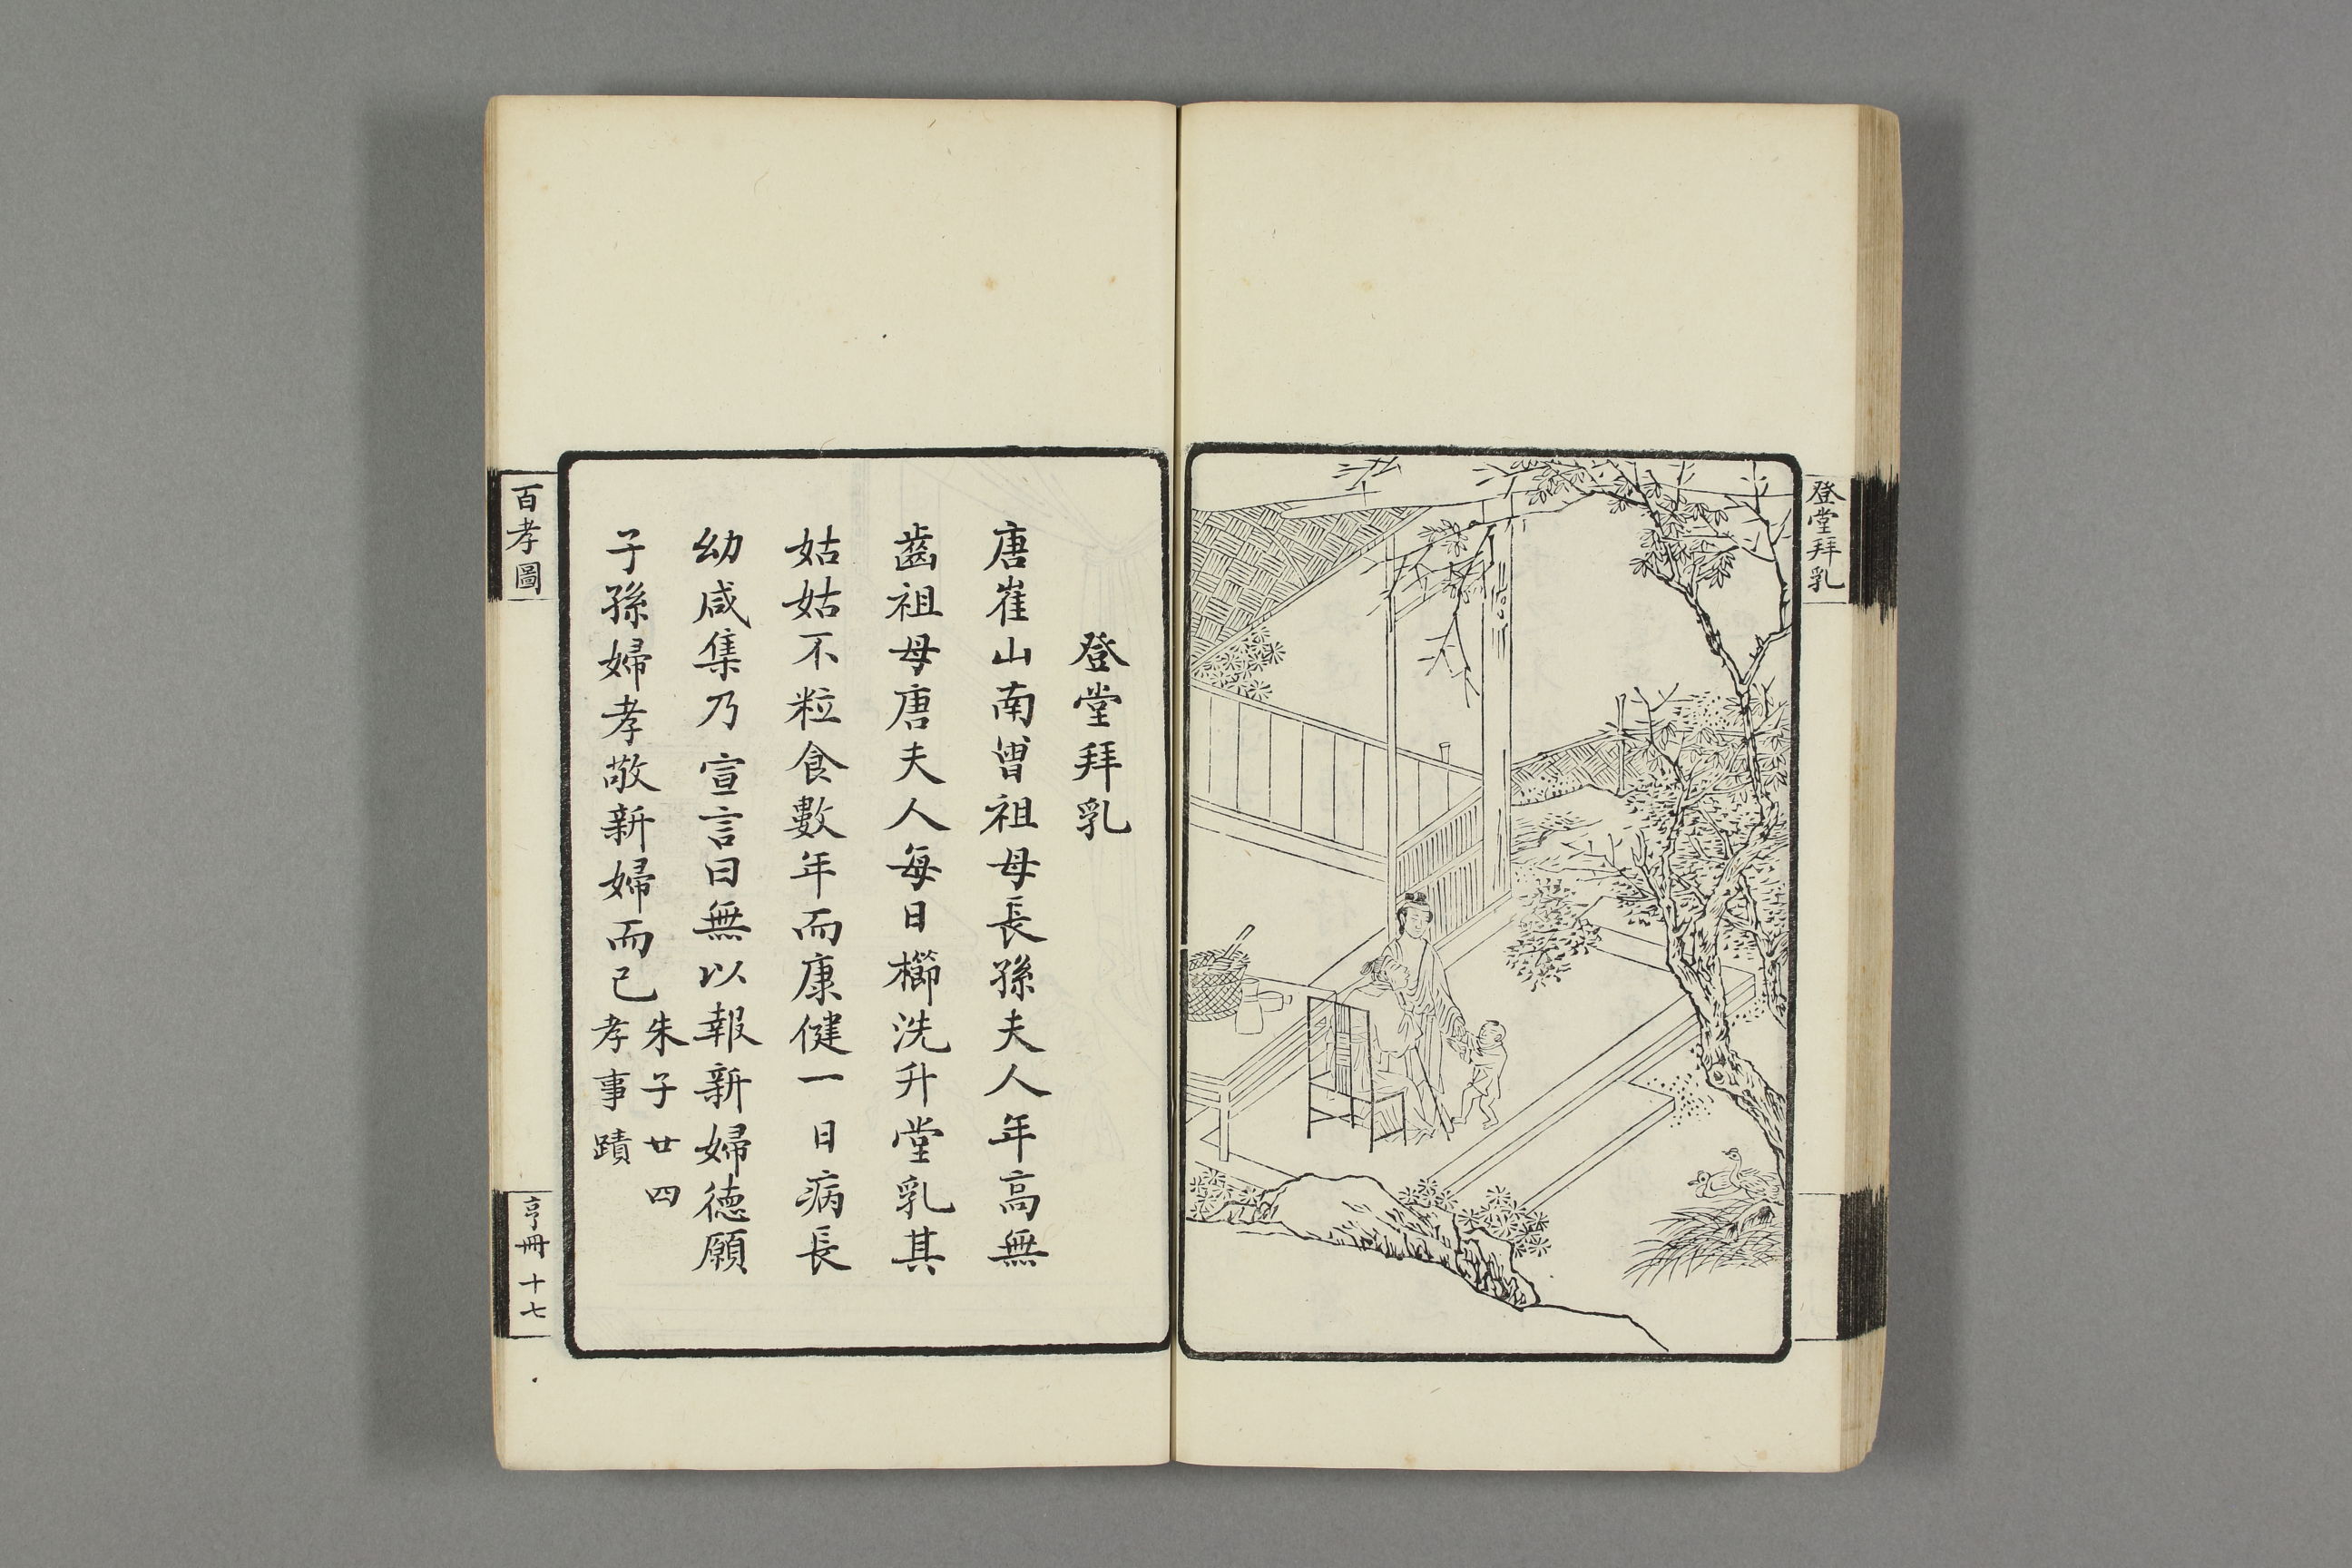 登堂拜乳
登堂拜乳
唐崔山南曾祖母長孫夫人年高無
齒祖母唐夫人每日櫛洗升堂乳其
姑姑不粒食數年而康健一日病長
幼咸集乃宣言曰無以報新婦德願
子孫婦孝敬新婦而已
朱子廿四
孝事蹟
百孝圖
亨冊 十七